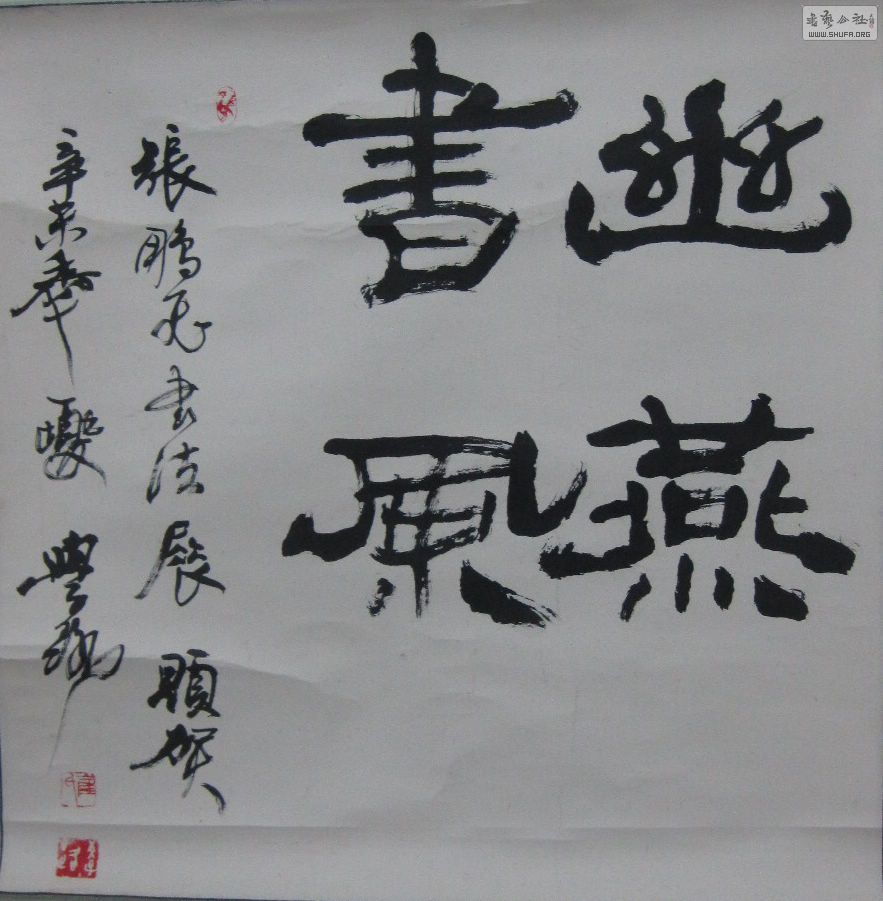 幽燕
書風
張鵬飛書法展 順賀
辛未奉
書藝公社
WWW.SHUFA.ORG